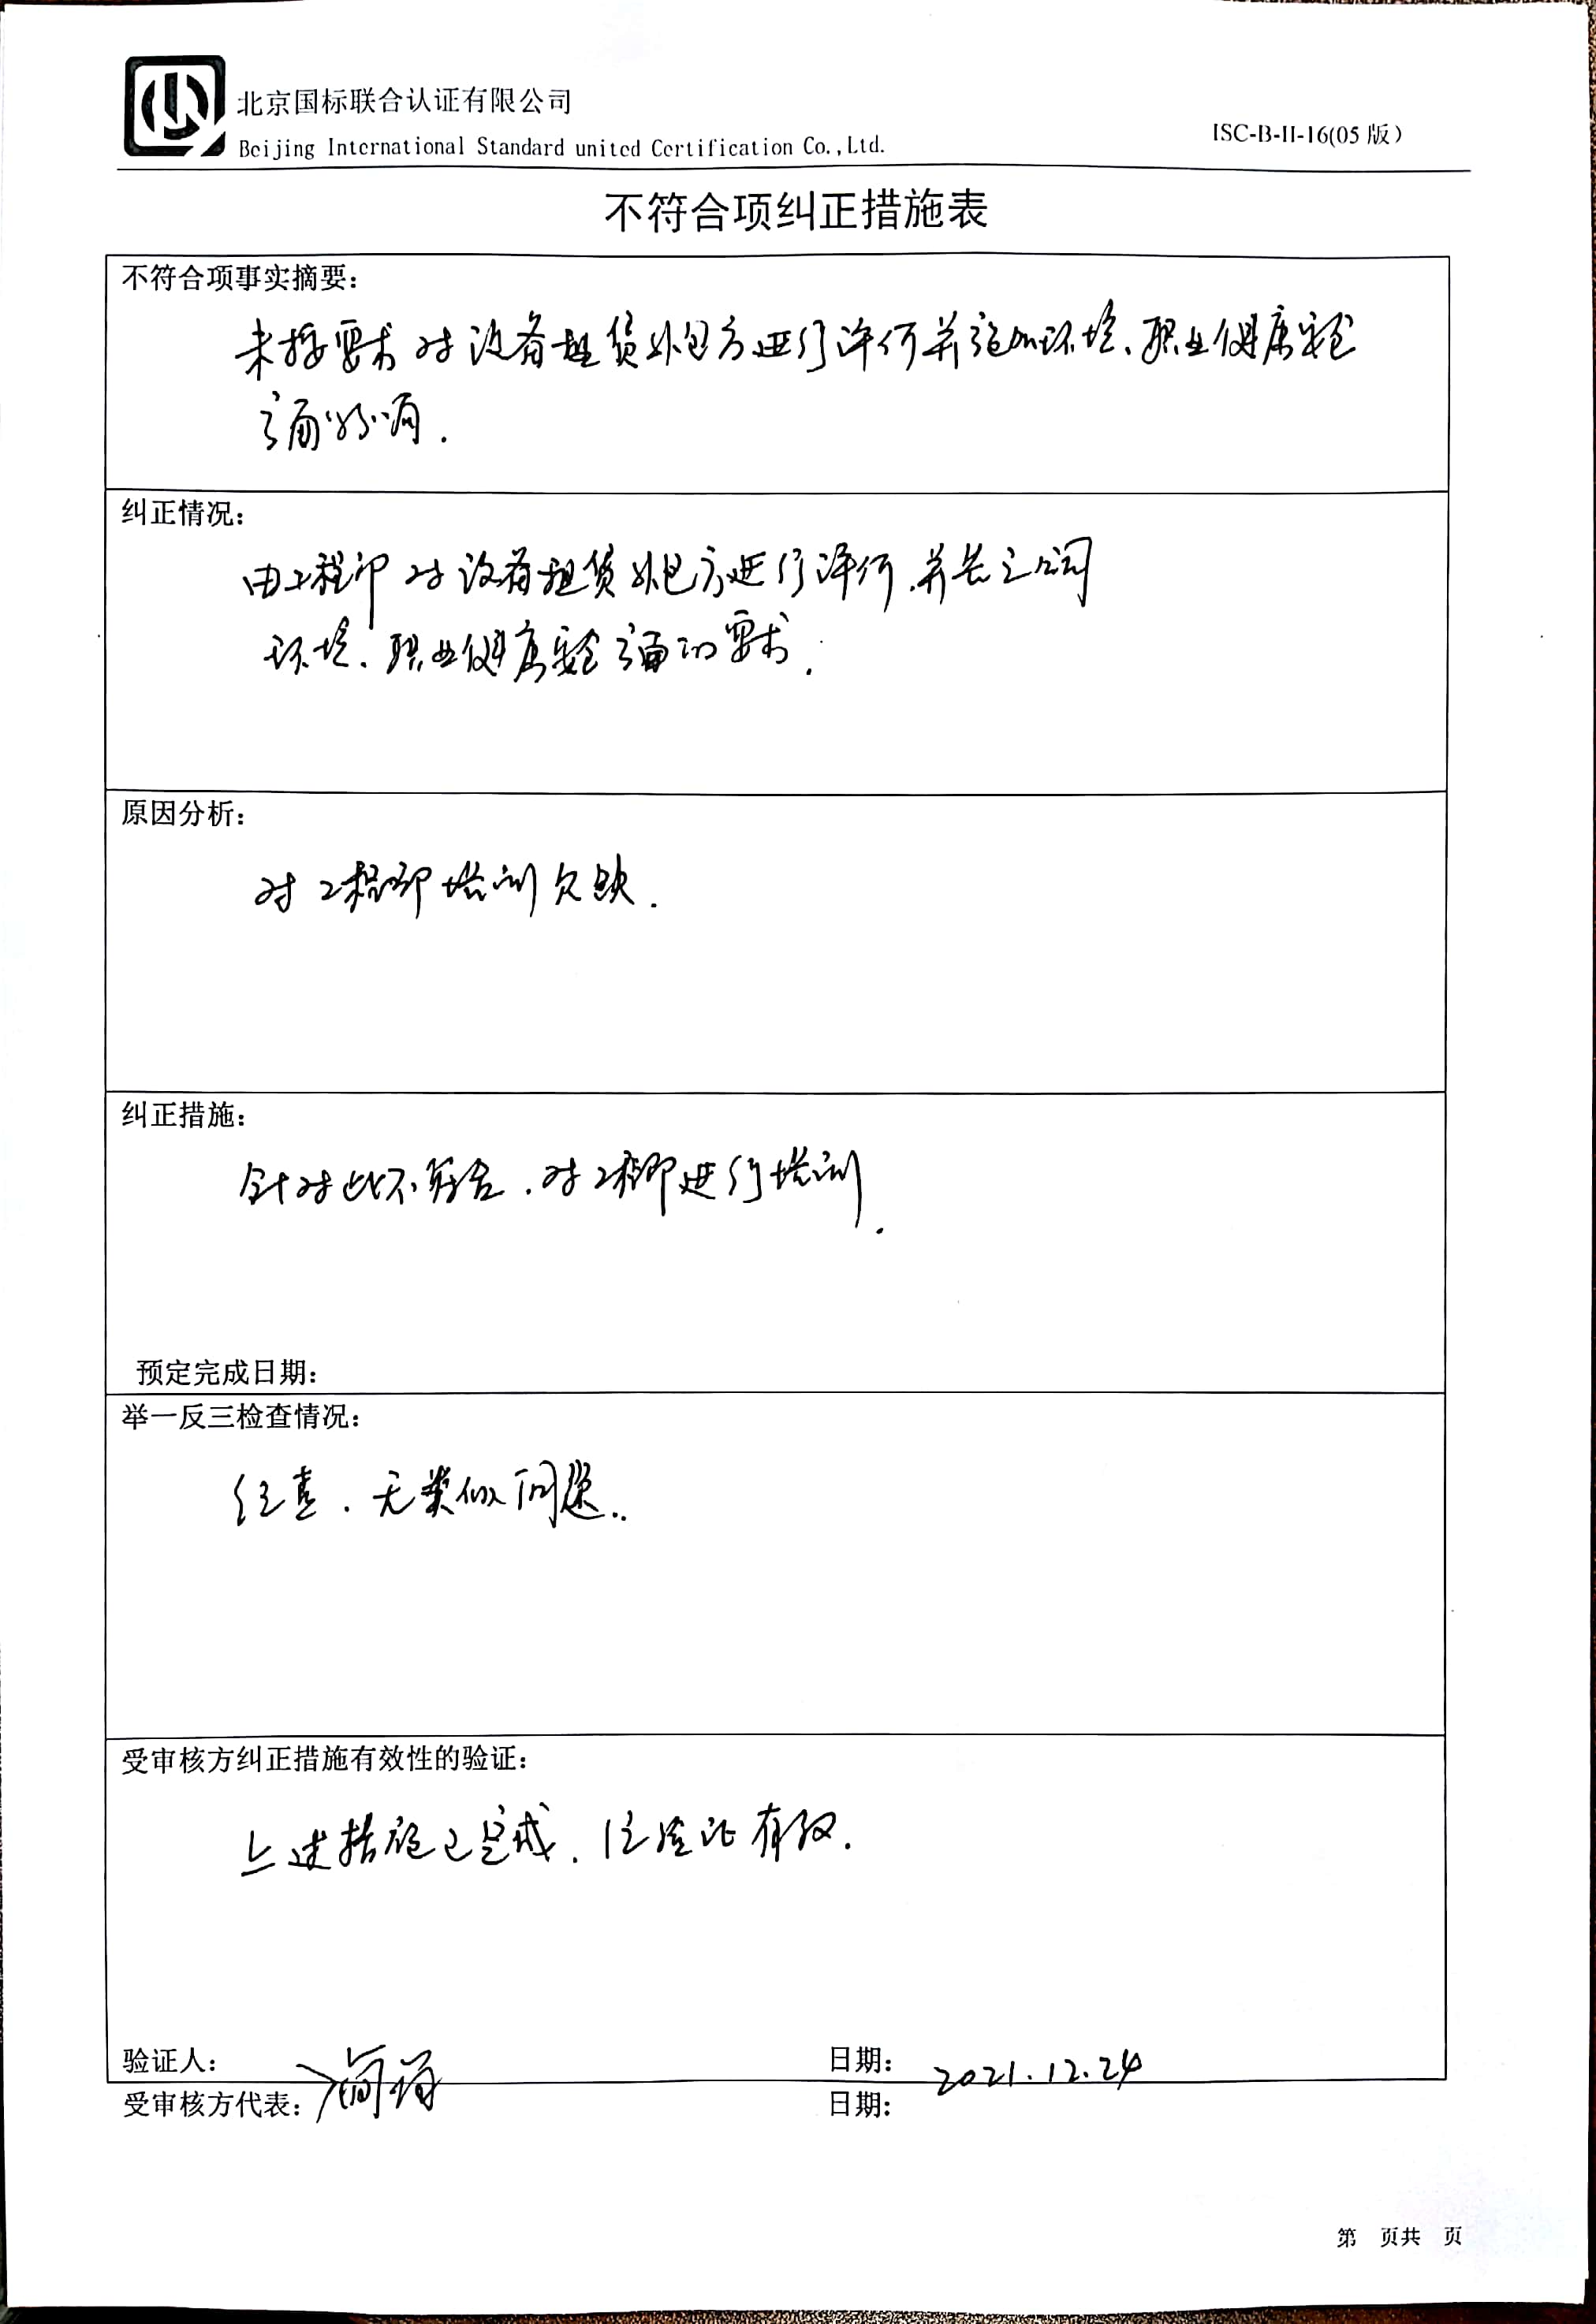 北京国标联合认证有限公司
Beijing International Standard united Certification Co.,Ltd.
ISC-B-II-16(05 版)
不符合项纠正措施表
不符合项事实摘要:
未按要求对设备租赁外包方进行评价并施加环境、职业健康安全
方面影响.
纠正情况:
由工程部对设备租赁外包方进行评价.并告之公司
环境、职业健康安全方面的要求.
原因分析:
对工程部培训欠缺.
纠正措施:
针对此不符合.对工程部进行培训.
预定完成日期:
举一反三检查情况:
经查.无类似问题..
受审核方纠正措施有效性的验证:
上述措施已完成.经验证有效.
验证人:
日期: 2021.12.24
受审核方代表:
日期:
第 页共 页